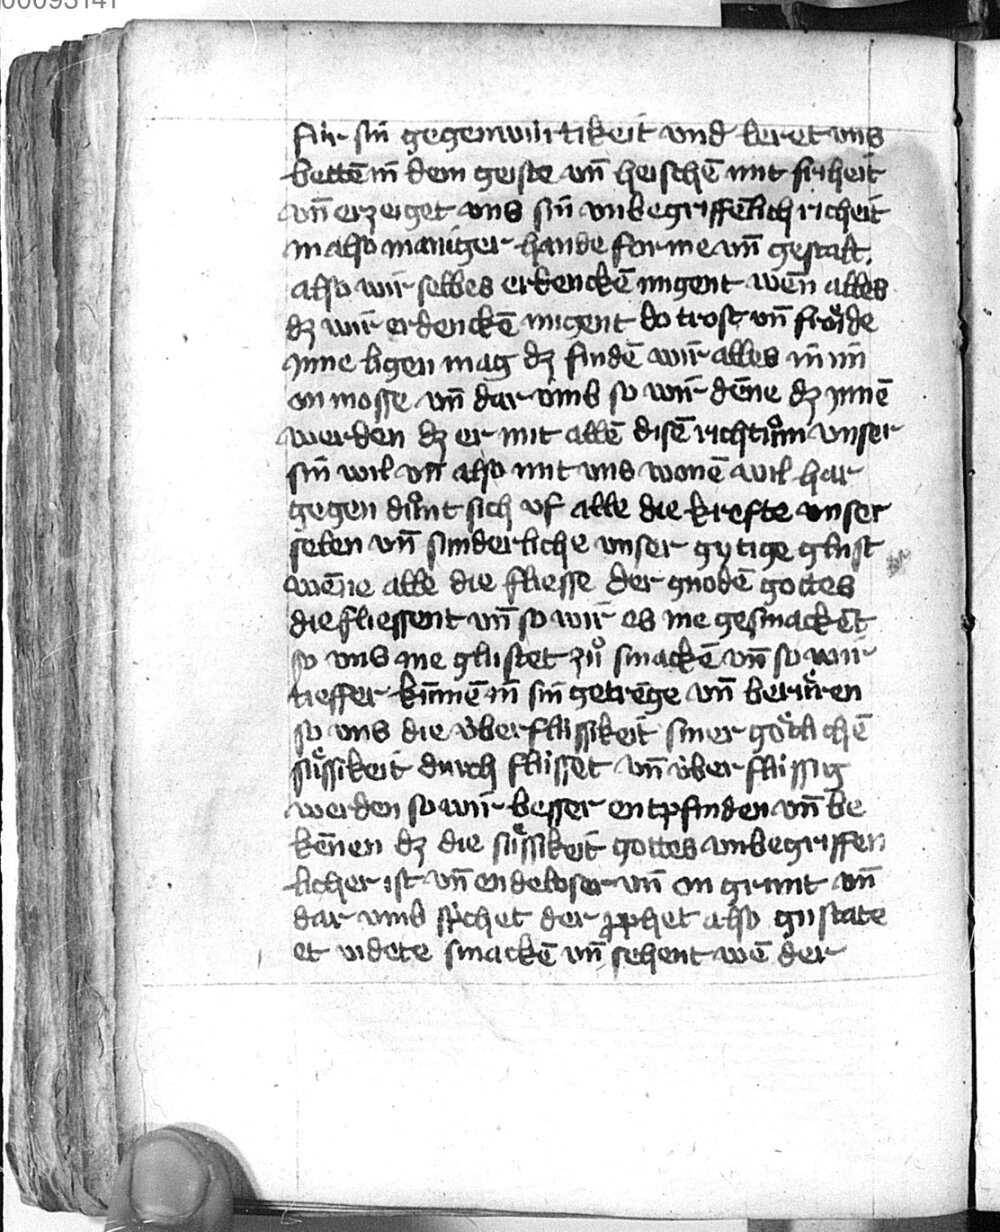 00093141
für sin gegenwürtikeit vnd leret vns
bettē in dem geiste vn̄ heischē mit friheit
vn̄ erzeiget vns sin vnbegriffēlich richeit
in also maniger hande forme vn̄ gestalt.
also wir selbes erdenckē mügent wēn alles
dz wir erdenckē mügent do trost vn̄ fröide
ynne ligen mag dz findē wir alles in im
on mosse vn̄ dar vmb so wir dēne dz ynnē
werden dz er mit allē disē richtům vnser
sin wil vn̄ also mit vns wonē wil har
gegen důnt sich vf alle die krefte vnser
selen vn̄ sunderliche vnser gytige glust
wēne alle die fliesse der gnodē gottes
die fliessent vn̄ so wir es me gesmackēt
so vns me glustet zů smackē vn̄ so wir
tieffer kūmē in sin getrēge vn̄ berüren
so vns die überflüssikeit siner götlichē
süssikeit durch flüsset vn̄ über flüssig
werden so wir besser entpfinden vn̄ be
kēnen dz die süssikeit gottes vnbegriffen
licher ist vn̄ endeloser vn̄ on grunt vn̄
dar vmb sp̄chet der ꝓphet also gustate
et videte smackē vn̄ sehent wē der